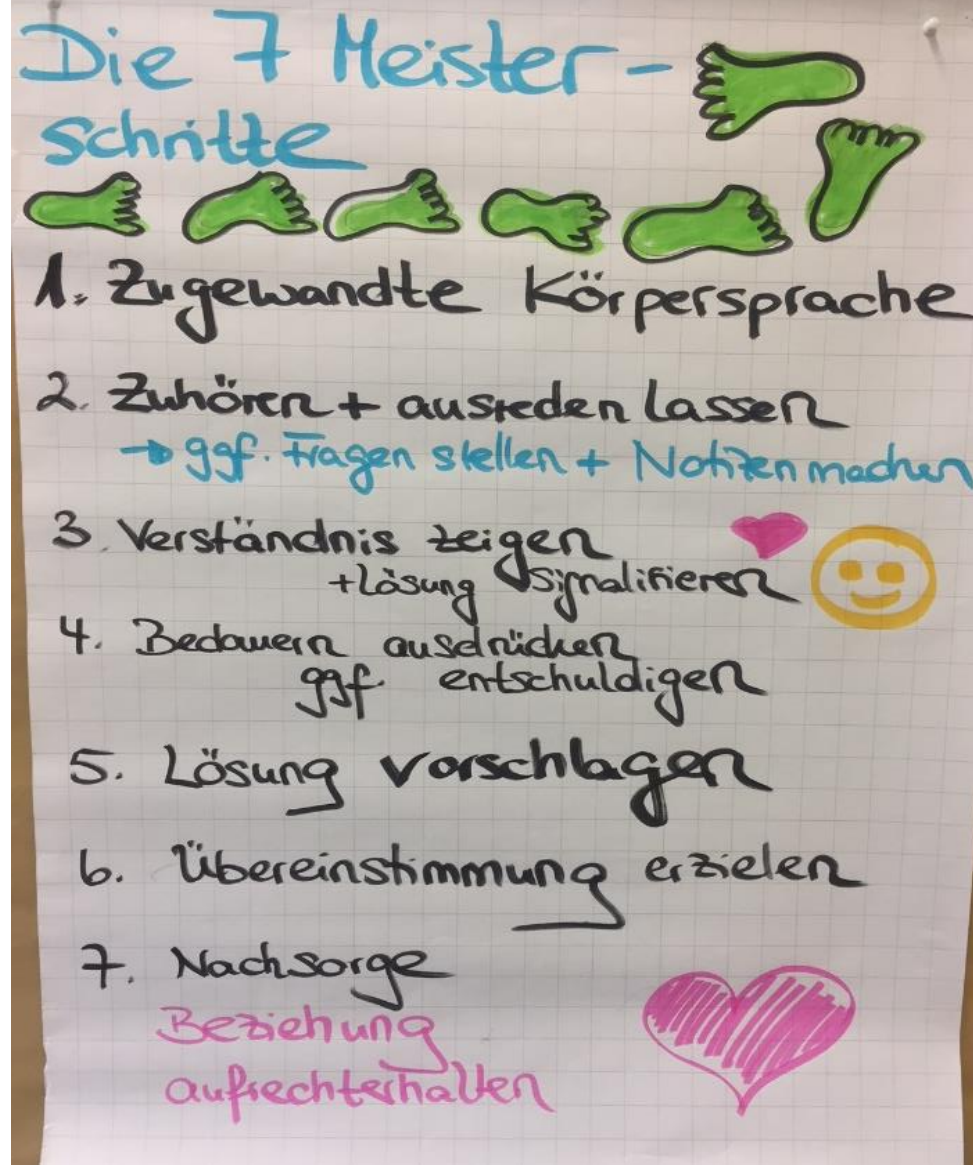 Die 7 Meister-
schritte
1. Zugewandte Körpersprache
2. Zuhören + ausreden lassen
→ ggf. Fragen stellen + Notizen machen
3. Verständnis zeigen
+ Lösung signalisieren
4. Bedauern ausdrücken
ggf. entschuldigen
5. Lösung vorschlagen
6. Übereinstimmung erzielen
7. Nachsorge
Beziehung
aufrechterhalten